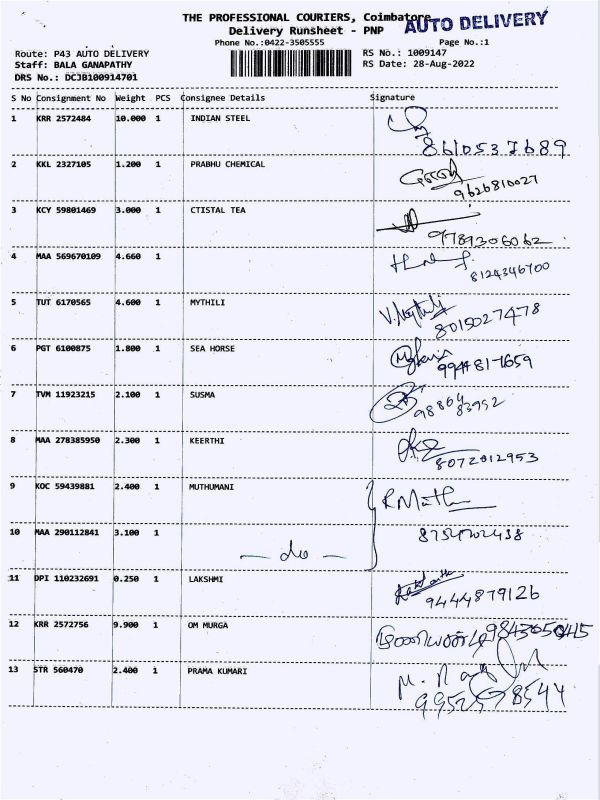 THE PROFESSIONAL COURIERS, Coimbatore
AUTO DELIVERY
Delivery Runsheet - PNP
Phone No.:0422-3505555 Page No.:1
Route: P43 AUTO DELIVERY RS No.: 1009147
Staff: BALA GANAPATHY RS Date: 28-Aug-2022
DRS No.: DCJB100914701
S No Consignment No Weight PCS Consignee Details Signature
1 KRR 2572484 10.000 1 INDIAN STEEL
8610537689
2 KKL 2327105 1.200 1 PRABHU CHEMICAL
9626810027
3 KCY 59801469 3.000 1 CTISTAL TEA
9789306062
4 MAA 569670109 4.660 1
8124346700
5 TUT 6170565 4.600 1 MYTHILI V.Mythili
8015027478
6 PGT 6100875 1.800 1 SEA HORSE
9944817659
7 TVM 11923215 2.100 1 SUSMA
98864
83952
8 MAA 278385950 2.300 1 KEERTHI
8072012953
9 KOC 59439881 2.400 1 MUTHUMANI
10 MAA 290112841 3.100 1
— do —
11 DPI 110232691 0.250 1 LAKSHMI
9444879126
12 KRR 2572756 9.900 1 OM MURGA
13 STR 560470 2.400 1 PRAMA KUMARI